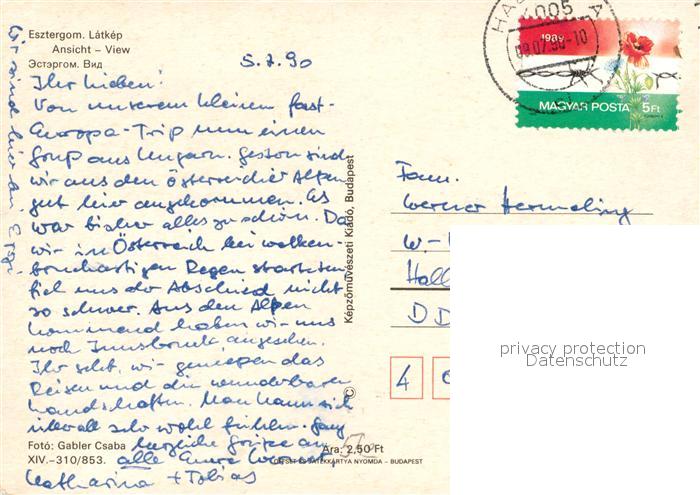 Esztergom. Látkép
Ansicht – View
Эстэргом. Вид
5.7.90
Ihr Lieben!
Von unserem kleinen fast-
Europa-Trip nun einen
Gruß aus Ungarn. Gestern sind
wir aus den Österreicher Alpen
gut hier angekommen. Es
war bisher alles zu schön. Da
wir in Österreich bei wolken-
bruchartigen Regen starteten
fiel uns der Abschied nicht
so schwer. Aus den Alpen
kommend haben wir uns
noch Innsbruck angesehen.
Ihr seht, wir genießen das
Reisen und die wunderbaren
Landschaften. Man kann sich
überall sehr wohl fühlen. Ganz
herzliche Grüße an
alle Eure
Katharina + Tobias
Wir sind hier in
Foto: Gabler Csaba
XIV.–310/853.
Ára: 2,50 Ft
OFFSET ÉS JÁTÉKKÁRTYA NYOMDA – BUDAPEST
Képzőművészeti Kiadó, Budapest
©
1989
MAGYAR POSTA 5Ft
4005
09.07.90-10
Fam.
Werner Hermeling
W-
Hall
DD
4
privacy protection
Datenschutz